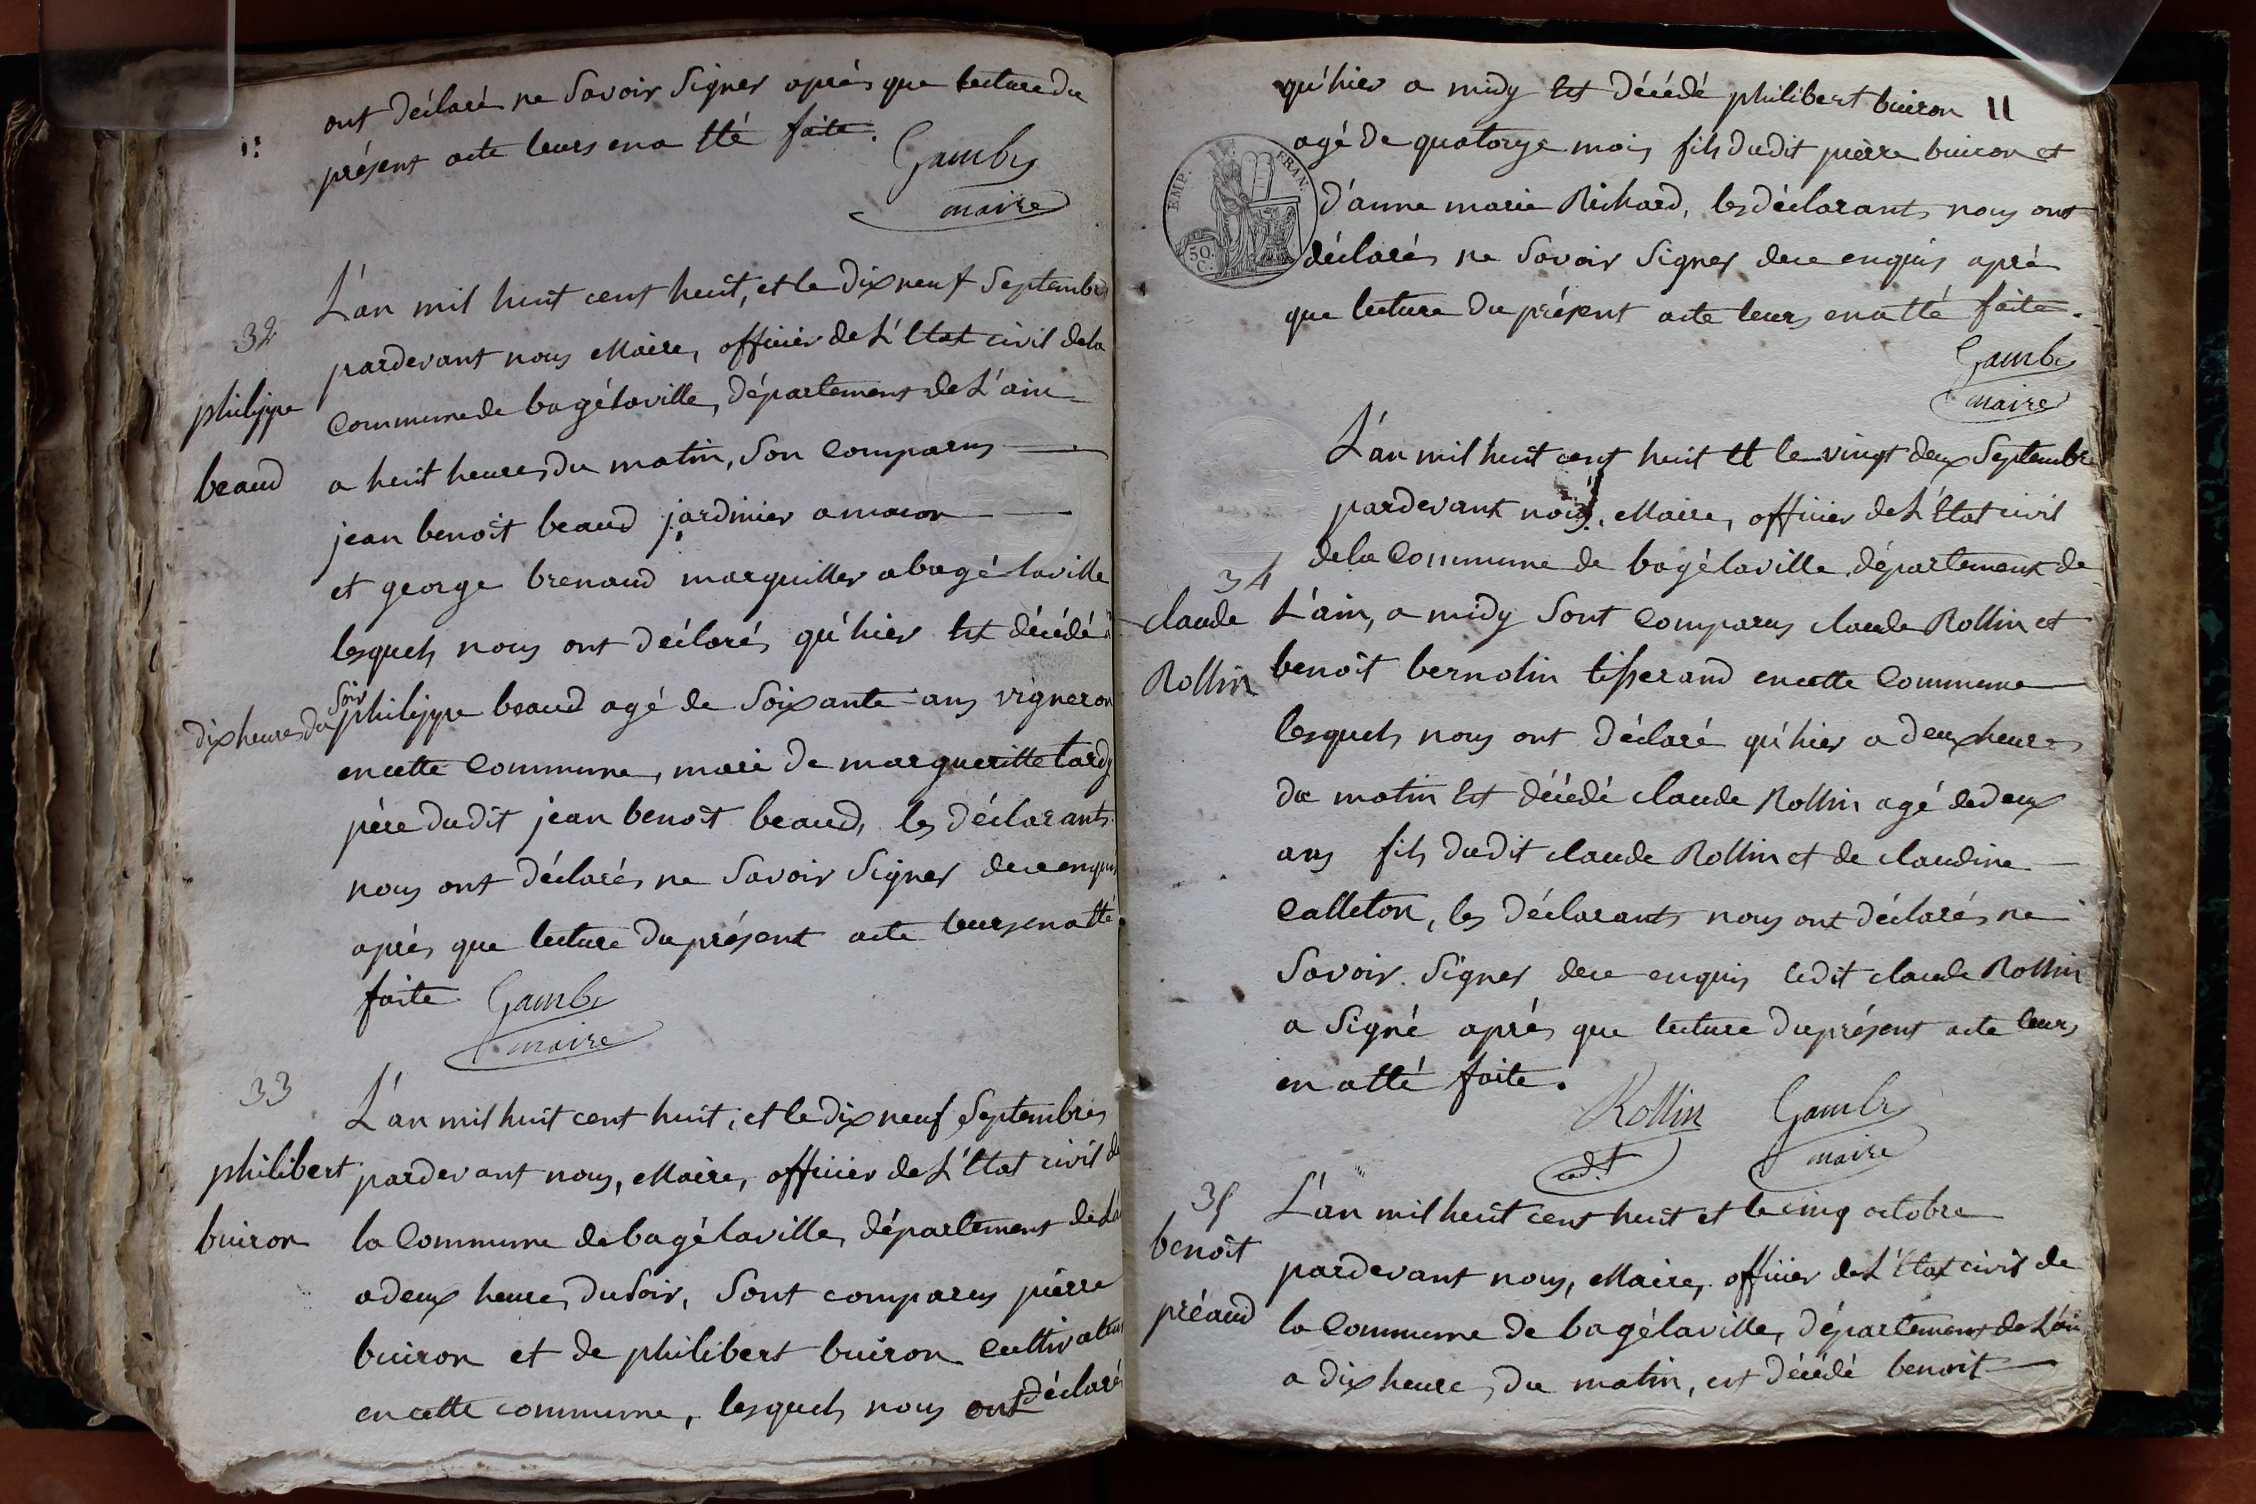 ont déclaré ne Savoir Signer après que lecture du
présent acte leurs en a été faite.
Gambs
maire
32
philippe
beaud
L'an mil huit cent huit, et le dix neuf Septembre
pardevant nous Maire, officier de L'Etat civil dela
Commune de bagélaville, département de L'ain
a huit heures du matin, Son Comparus
jean benoît beaud jardinier a macon
et george brenaud marguiller a bagé laville
lesquels nous ont déclarés qu'hier Est décédé
dix heures du Soir
philippe beaud agé de Soixante ans vigneron
en cette Commune, mari de margueritte tardy
père dudit jean benoît beaud, les déclarants
nous ont déclarés ne Savoir Signer de ce enquis
après que lecture du présent acte leurs en a été
faite
Gambs
maire
33
philibert
buiron
L'an mil huit cent huit, et le dix neuf Septembres
pardevant nous, Maire, officier de L'Etat civil de
la Commune de bagélaville, département de L'ai
a deux heures du Soir, Sont comparus pièrre
buiron et de philibert buiron Cultivateurs
en cette commune, lesquels nous ont déclarés
qu'hier a midy Est décédé philibert buiron 11
agé de quatorze mois fils dudit pièrre buiron et
d'anne marie Richard, les déclarants nous ont
déclarés ne Savoir Signer de ce enquis après
que lecture du présent acte leurs en a été faite.
EMP. FRAN.
50.
C.
Gambs
maire
34
claude
Rollin
L'an mil huit cent huit Et le vingt deux Septembre
pardevant nous, Maire, officier de L'Etat civil
dela Commune de bagélaville département de
L'ain, a midy Sont Comparus claude Rollin et
benoît bernolin tisserand en cette Commune
lesquels nous ont déclaré qu'hier a deux heures
du matin Est décédé claude Rollin agé de deux
ans fils dudit claude Rollin et de claudine
Calleton, les déclarants nous ont déclarés ne
Savoir Signer de ce enquis ledit claude Rollin
a Signé après que lecture du présent acte leurs
en a été faite.
Rollin Gambs
maire
35
benoît
préaud
L'an mil huit cent huit et le cinq octobre
pardevant nous, Maire, officier de L'Etat civil de
la Commune de bagélaville, département de L'ain
a dix heures du matin, est décédé benoit